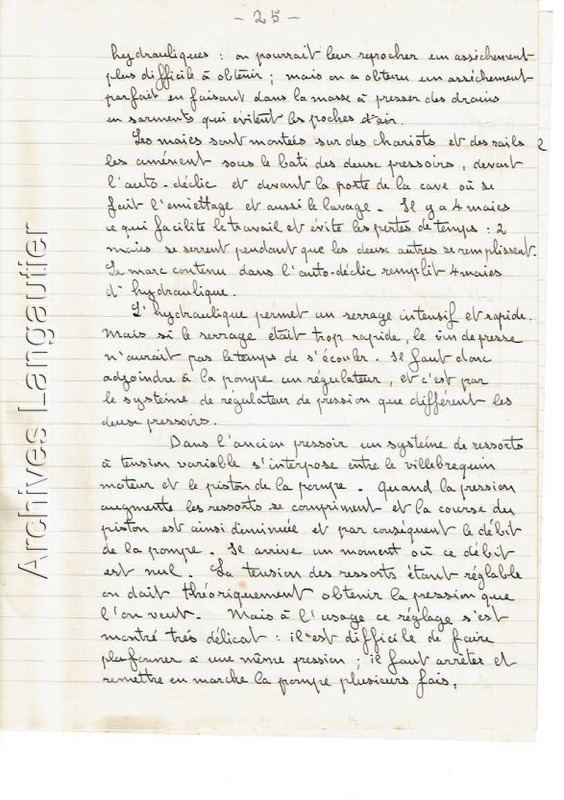 - 25 -
hydrauliques : on pourrait leur reprocher un assèchement
plus difficile à obtenir ; mais on a obtenu un assèchement
parfait en faisant dans la masse à presser des drains
en sarments qui évitent les poches d'air.
Les maies sont montées sur des chariots et des rails 2
les amènent sous le bati des deux pressoirs, devant
l'auto-déclic et devant la porte de la cave où se
fait l'émiettage et aussi le lavage. Il y a 4 maies
ce qui facilite le travail et évite les pertes de temps : 2
maies se serrent pendant que les deux autres se remplissent.
Le marc contenu dans l'auto-déclic remplit 4 maies
d'hydraulique.
L'hydraulique permet un serrage intensif et rapide.
Mais si le serrage était trop rapide, le vin de presse
n'aurait pas le temps de s'écouler. Il faut donc
adjoindre à la pompe un régulateur, et c'est par
le système de régulateur de pression que diffèrent les
deux pressoirs.
Dans l'ancien pressoir un système de ressorts
à tension variable s'interpose entre le villebrequin
moteur et le piston de la pompe. Quand la pression
augmente les ressorts se compriment et la course du
piston est ainsi diminuée et par conséquent le débit
de la pompe. Il arrive un moment où ce débit
est nul. La tension des ressorts étant réglable
on doit théoriquement obtenir la pression que
l'on veut. Mais à l'usage ce réglage s'est
montré très délicat : il est difficile de faire
plafonner à une même pression ; il faut arrêter et
remettre en marche la pompe plusieurs fois,
Archives Langautier